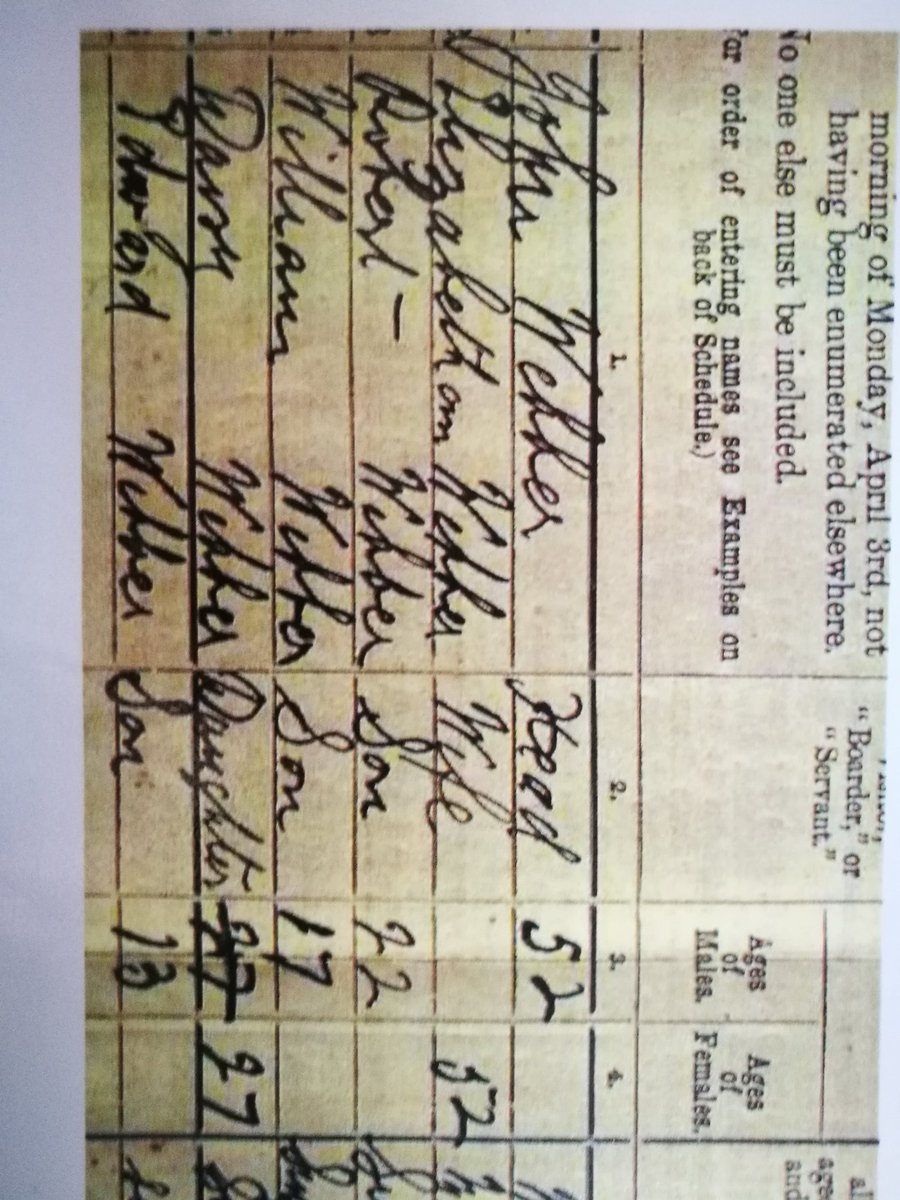 morning of Monday, April 3rd, not
having been enumerated elsewhere.
No one else must be included.
For order of entering names see Examples on
back of Schedule.)
"Boarder," or
"Servant."
Ages
of
Males.
Ages
of
Females.
1. 2. 3. 4.
John Webber Head 52
Elizabeth Ann Webber Wife 52
Robert – Webber Son 22
William Webber Son 17
Webber Daughter 27 27
Edward Webber Son 13